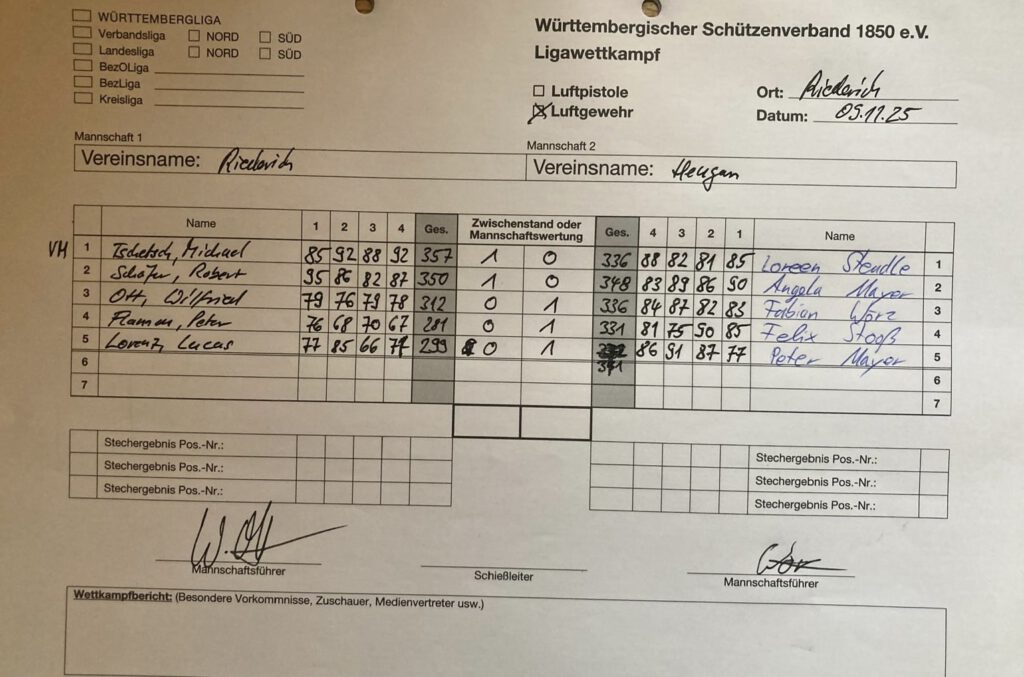 WÜRTTEMBERGLIGA
Verbandsliga NORD SÜD
Landesliga NORD SÜD
BezOLiga
BezLiga
Kreisliga
Württembergischer Schützenverband 1850 e.V.
Ligawettkampf
Luftpistole
Luftgewehr
Ort: Riederich
Datum: 09.11.25
Mannschaft 1
Vereinsname: Riederich
Mannschaft 2
Vereinsname:
Name 1 2 3 4 Ges. Zwischenstand oder Mannschaftswertung Ges. 4 3 2 1 Name
VM 1 Tschetsch, Michael 85 92 88 92 357 1 0 336 88 82 81 85 Loreen Stendle 1
2 Schäfer, Robert 95 86 82 87 350 1 0 348 83 89 86 90 Angela Mayer 2
3 Ott, Wilfried 79 76 79 78 312 0 1 336 84 87 82 83 Fabian Wörz 3
4 Peter 76 68 70 67 281 0 1 331 81 75 90 85 Felix Stooß 4
5 Lorenz, Lucas 77 85 66 71 299 0 1 86 91 87 77 Peter Mayer 5
341
6 6
7 7
Stechergebnis Pos.-Nr.: Stechergebnis Pos.-Nr.:
Stechergebnis Pos.-Nr.: Stechergebnis Pos.-Nr.:
Stechergebnis Pos.-Nr.: Stechergebnis Pos.-Nr.:
W. Ott
Mannschaftsführer
Schießleiter
Mannschaftsführer
Wettkampfbericht: (Besondere Vorkommnisse, Zuschauer, Medienvertreter usw.)